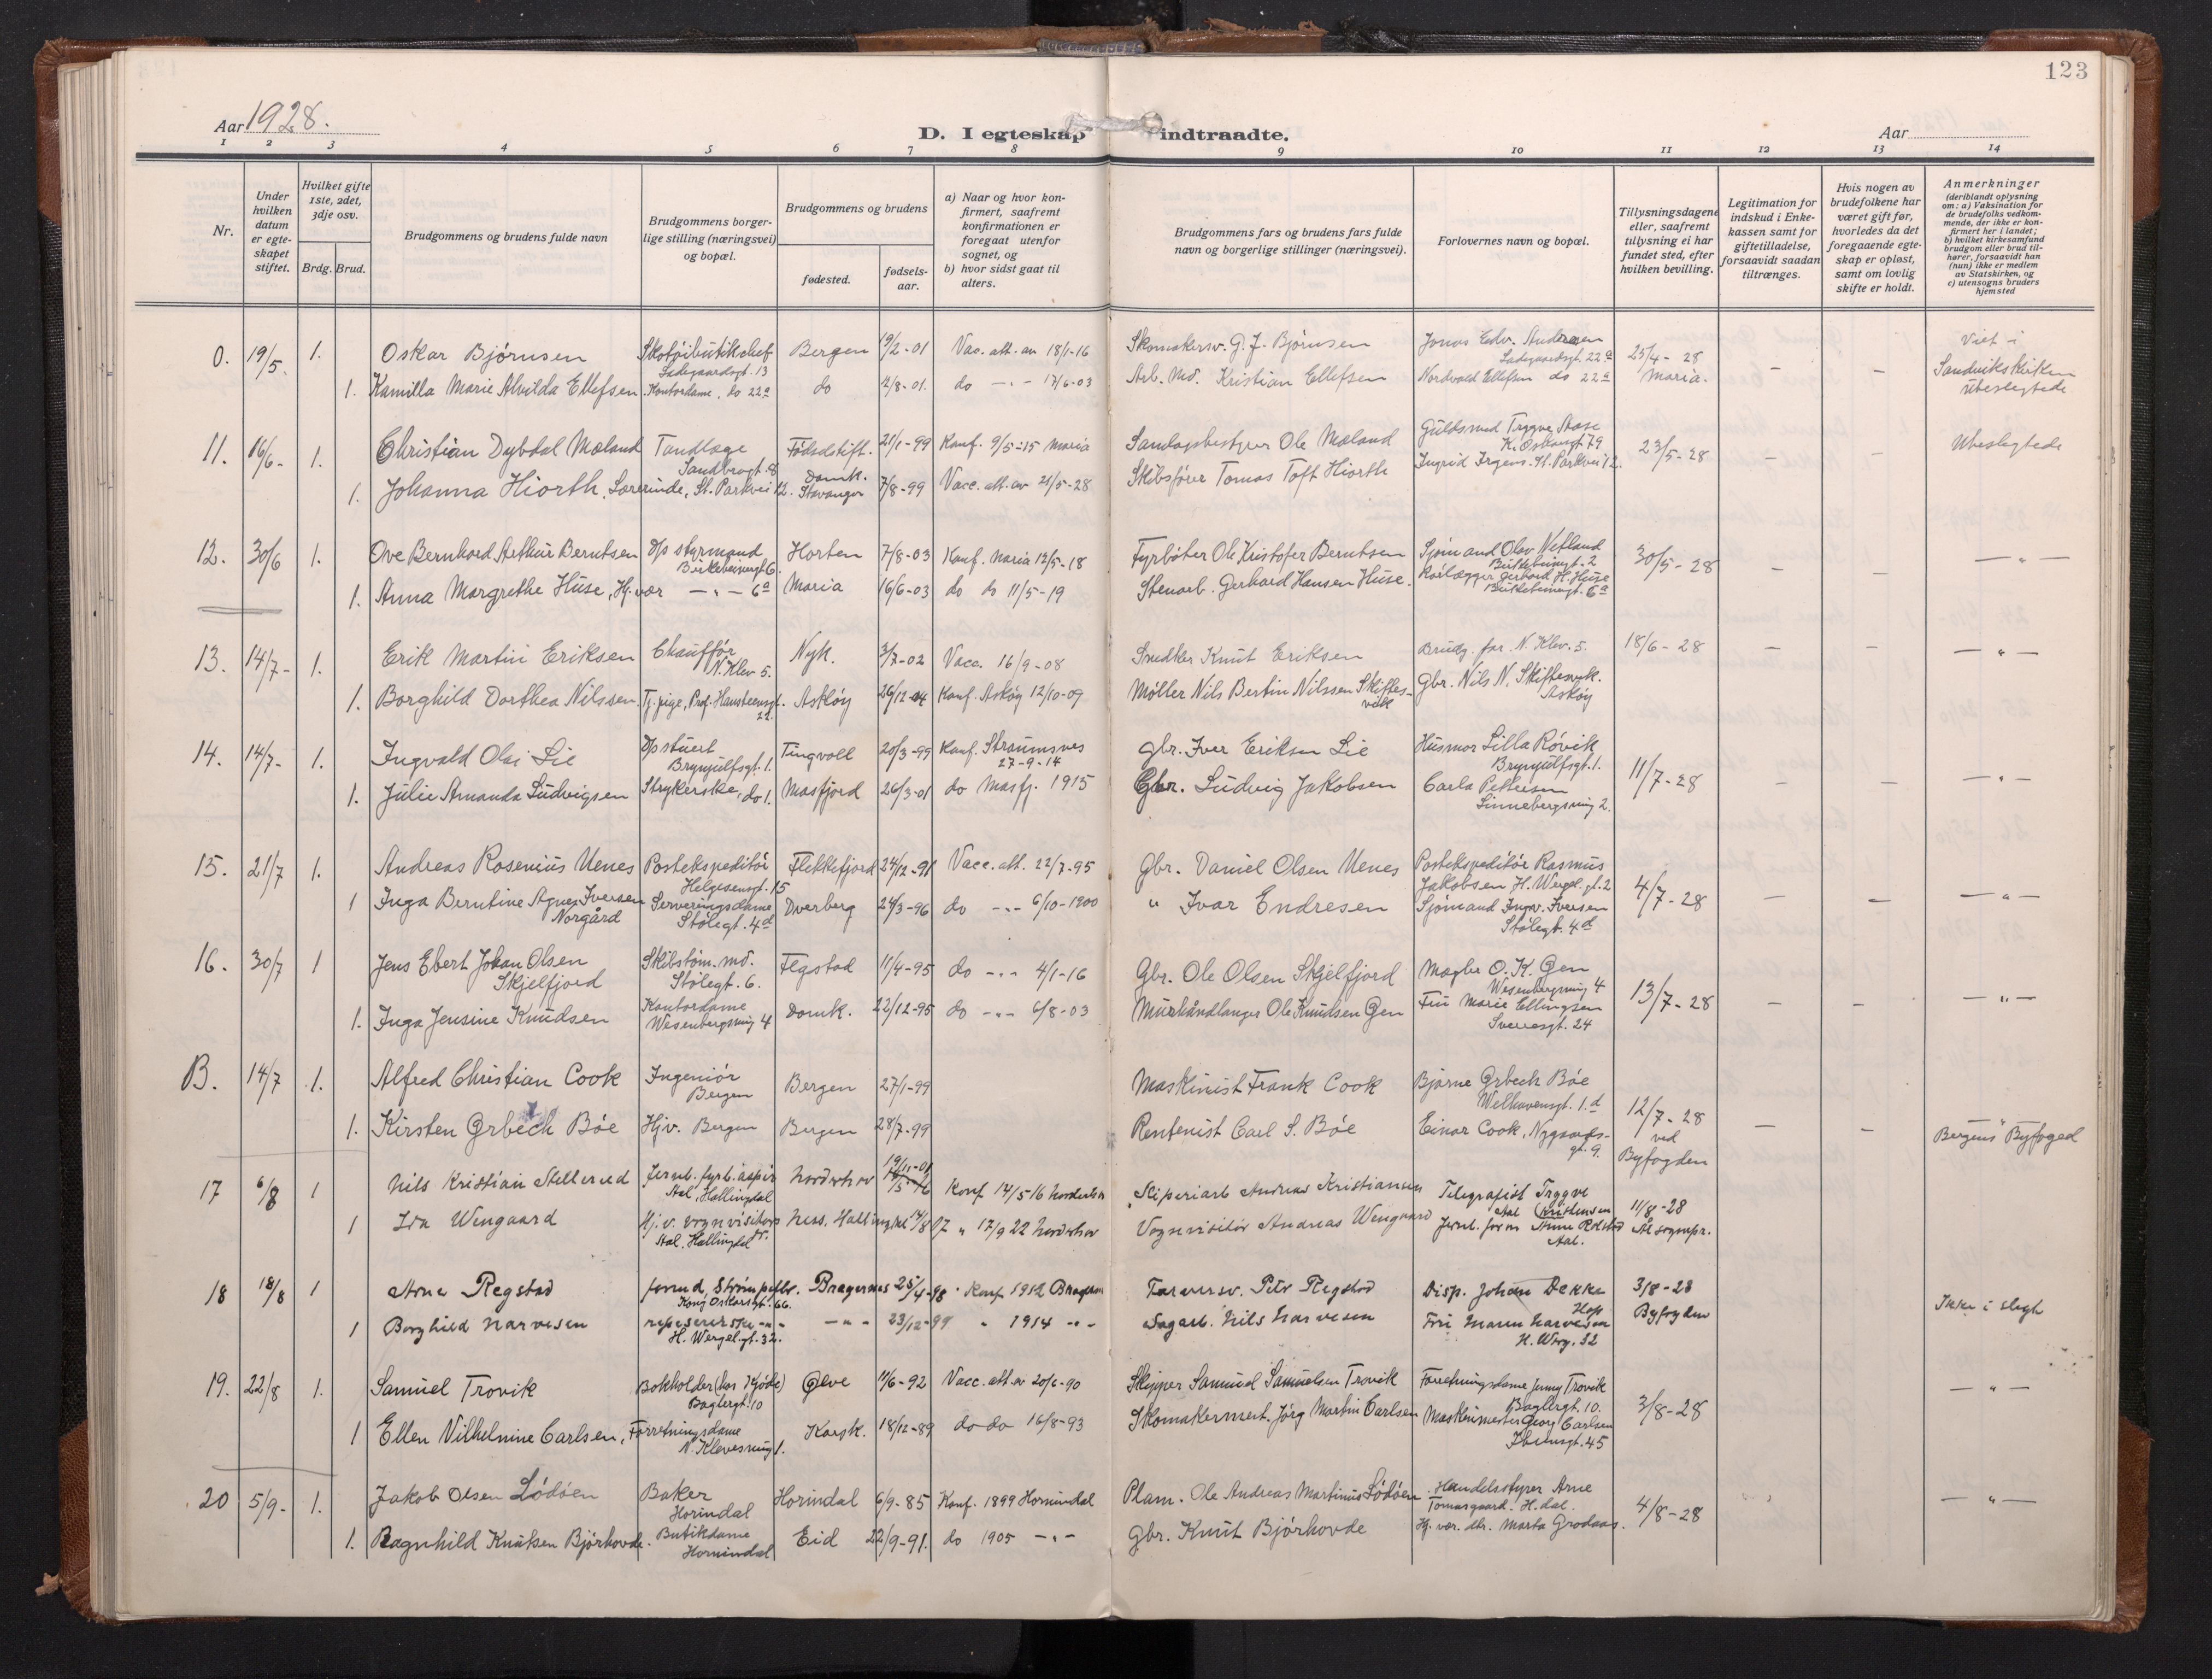 123
Aar 1928.
D. I egteskap indtraadte.
Aar
1 2 3 4 5 6 7 8 9 10 11 12 13 14
Nr.
Under hvilken datum er egteskapet stiftet.
Hvilket gifte 1ste, 2det, 3dje osv.
Brdg. Brud.
Brudgommens og brudens fulde navn
Brudgommens borgerlige stilling (næringsvei) og bopæl.
Brudgommens og brudens
fødested.
fødselsaar.
a) Naar og hvor konfirmert, saafremt konfirmationen er foregaat utenfor sognet, og
b) hvor sidst gaat til alters.
Brudgommens fars og brudens fars fulde navn og borgerlige stillinger (næringsvei).
Forlovernes navn og bopæl.
Tillysningsdagene eller, saafremt tillysning ei har fundet sted, efter hvilken bevilling.
Legitimation for indskud i Enkekassen samt for giftetilladelse, forsaavidt saadan tiltrænges.
Hvis nogen av brudefolkene har været gift før, hvorledes da det foregaaende egteskap er opløst, samt om lovlig skifte er holdt.
Anmerkninger (deriblandt oplysning om: a) Vaksination for de brudefolks vedkommende, der ikke er konfirmert her i landet; b) hvilket kirkesamfund brudgom eller brud tilhører, forsaavidt han (hun) ikke er medlem av Statskirken, og c) utensogns bruders hjemsted
0. 19/5. 1. Oskar Bjørnsen Skotøibutikchef Ladegaardsgt. 13 Bergen 19/2-01 Vac. att. av 18/1-16 Skomakersv. G. J. Bjørnsen Jonas Edv. Andersen Ladegaardsgt. 22a 25/4-28 Maria. Viet i Sandvikskirken ubeslegtede
1. Kamilla Marie Alvilda Ellefsen Kontordame, do 22a do 4/8-01. do -"- 17/6-03 Arb. Md. Kristian Ellefsen Nordvald Ellefsen do 22a
11. 16/6- 1. Christian Dybdal Mæland Tandlæge Sandbrogt. 8 Fødselsstift. 21/1-99 Konf. 9/5-15 Maria Samlagsbestyrer Ole Mæland Guldsmed Trygve Aase K. Oskarsgt 79 23/5-28 Ubeslegtede
1. Johanna Hiorth, Lærerinde, St. Parkvei 12. Domk. Stavanger 7/8-99 Vacc. att. av 21/5-28 Skibsfører Tomas Toft Hiorth Ingrid Irgens. St. Parkvei 12.
12. 30/6 1. Ove Bernhard Arthur Berntsen D/s styrmand Birkebeinergt 6. Horten 7/8-03 Konf. Maria 12/5-18 Fyrbøter Ole Kristofer Berntsen Sjømand Olav Netland Birkebeinergt. 2 30/5-28 -"-
1. Anna Margrethe Huse, Hj. vær -"- 6a Maria 16/6-03 do do 11/5-19 Stenarb. Gerhard Hansen Huse. Rørlægger Gerhard H. Huse Birkebeinergt. 6a
13. 14/7- 1. Erik Martin Eriksen Chauffør N. Klev 5. Nyk. 3/7-02 Vacc. 16/9-08 Snedker Knut Eriksen Brudg. far. N. Klev. 5. 18/6-28 -"-
1. Borghild Dorthea Nilssen Tj. pige, Prof. Hansteensgt. 22. Askøy 26/12-04 Konf. Askøy 12/10-09 Møller Nils Bertin Nilssen Skiftesvik Gbr. Nils N. Skiftesvik. Askøy
14. 14/7- 1. Ingvald Olai Lie D/s stuert Brynjulfsgt. 1. Tingvoll 20/3-99 Konf. Straumsnes 27-9-14 Gbr. Iver Eriksen Lie Husmor Lilla Røvik Brynjulfsgt. 1. 11/7-28 -"-
1. Julie Amanda Ludvigsen Strykerske, do 1. Masfjord 26/3-01 do Masfj. 1915 Gbr. Ludvig Jakobsen Carla Pettersen Sinnebergsmug 2.
15. 21/7 1. Andreas Rosenius Uenes Postekspeditør Helgesensgt. 15 Flekkefjord 24/12-91 Vacc. att. 22/7-95 Gbr. Daniel Olsen Uenes Postekspeditør Rasmus Jakobsen H. Wergel. gt. 2 4/7-28 -"-
1 Inga Berntine Agnes Iversen Norgård Serveringsdame Stølegt. 4d Dverberg 24/3-96 do -"- 6/10-1900 " Ivar Endresen Sjømand Ingv. Iversen Stølegt. 4d
16. 30/7 1 Jens Ebert Johan Olsen Skjelfjord Skibstøm. md. Stølegt. 6. Flgstad 11/4-95 do -"- 4/1-16 Gbr. Ole Olsen Skjelfjord Mægler O. K. Gen Wesenbergsmug 4 13/7-28 -"-
1. Inga Jensine Knudsen Kontordame Wesenbergsmug 4 Domk. 22/12-95 do -"- 6/8-03 Murhåndlanger Ole Knudsen Gen Fru Marie Ellingsen Sverresgt. 24
B. 14/7 1. Alfred Christian Cook Ingeniør Bergen Bergen 27/1-99 Maskinist Frank Cook Bjarne Grbech Bøe Welhavensgt. 1.d 12/7-28 ved Byfogden Bergens Byfoged
1. Kirsten Grbech Bøe Hjv. Bergen Bergen 28/7-99 Rentenist Carl S. Bøe Einar Cook, Nygaardsgt. 9.
17 6/8 1 Nils Kristian Stellerud Jernb. fyrb. aspir. Aal, Hallingdal Norderhov 19/11-01 Konf 14/5 16 Norderhov Sliperiarb Andreas Kristiansen Telegrafist Trygve Kristensen Aal 11/8-28 Ål sognepr.
1 Ida Wengaard Hj. v. vognvisitørs Aal. Hallingdal Ness. Hallingdal 14/8 07 " 17/9 22 Norderhov Vognvisitør Andreas Wengaard
18 18/8 1 Arne Regstad Kong Oskarsgt. 66. Bragernes 25/4-98 Konf 1912 Bragernes Farversv. Petr Regstad Disp. Johan Dekke Hop 3/8-28 Byfogden Ikke i slegt
1 Borghild Narvesen reperererske -"- H. Wergel. gt. 32. -"- 23/12-99 " 1914 -"- Sagarb. Nils Narvesen Fru Maren Narvesen H. Werg. 32
19. 22/8 1. Samuel Trovik Bokholder (hos Gjøde) Baglergt. 10 Ølve 11/6-92 Vacc. att. av 20/6-90 Skipper Samuel Samuelsen Trovik Forretningsdame Jenny Trovik Baglergt. 10. 3/8-28 -"-
1 Ellen Vilhelmine Carlsen, Forretningsdame N. Klevesmug 1. Korsk. 18/12-89 do do 16/8-93 Skomakermest. Jörg Martin Carlsen Maskinmester Georg Carlsen Ibsensgt. 45
20 5/9- 1. Jakob Olsen Lødøen Baker Horindal Horindal 6/9-85 Konf. 1899 Hornindal Plam. Ole Andreas Martinus Lødøen Handelsstyrer Arne Tomasgaard. H.dal. 4/8-28 -"-
1. Ragnhild Knutsen Bjørhovde. Butikdame Hornindal Eid 22/9-91. do 1905 -"- Gbr. Knut Bjørhovde Hj. vær. dtr. Marta Grodaas.